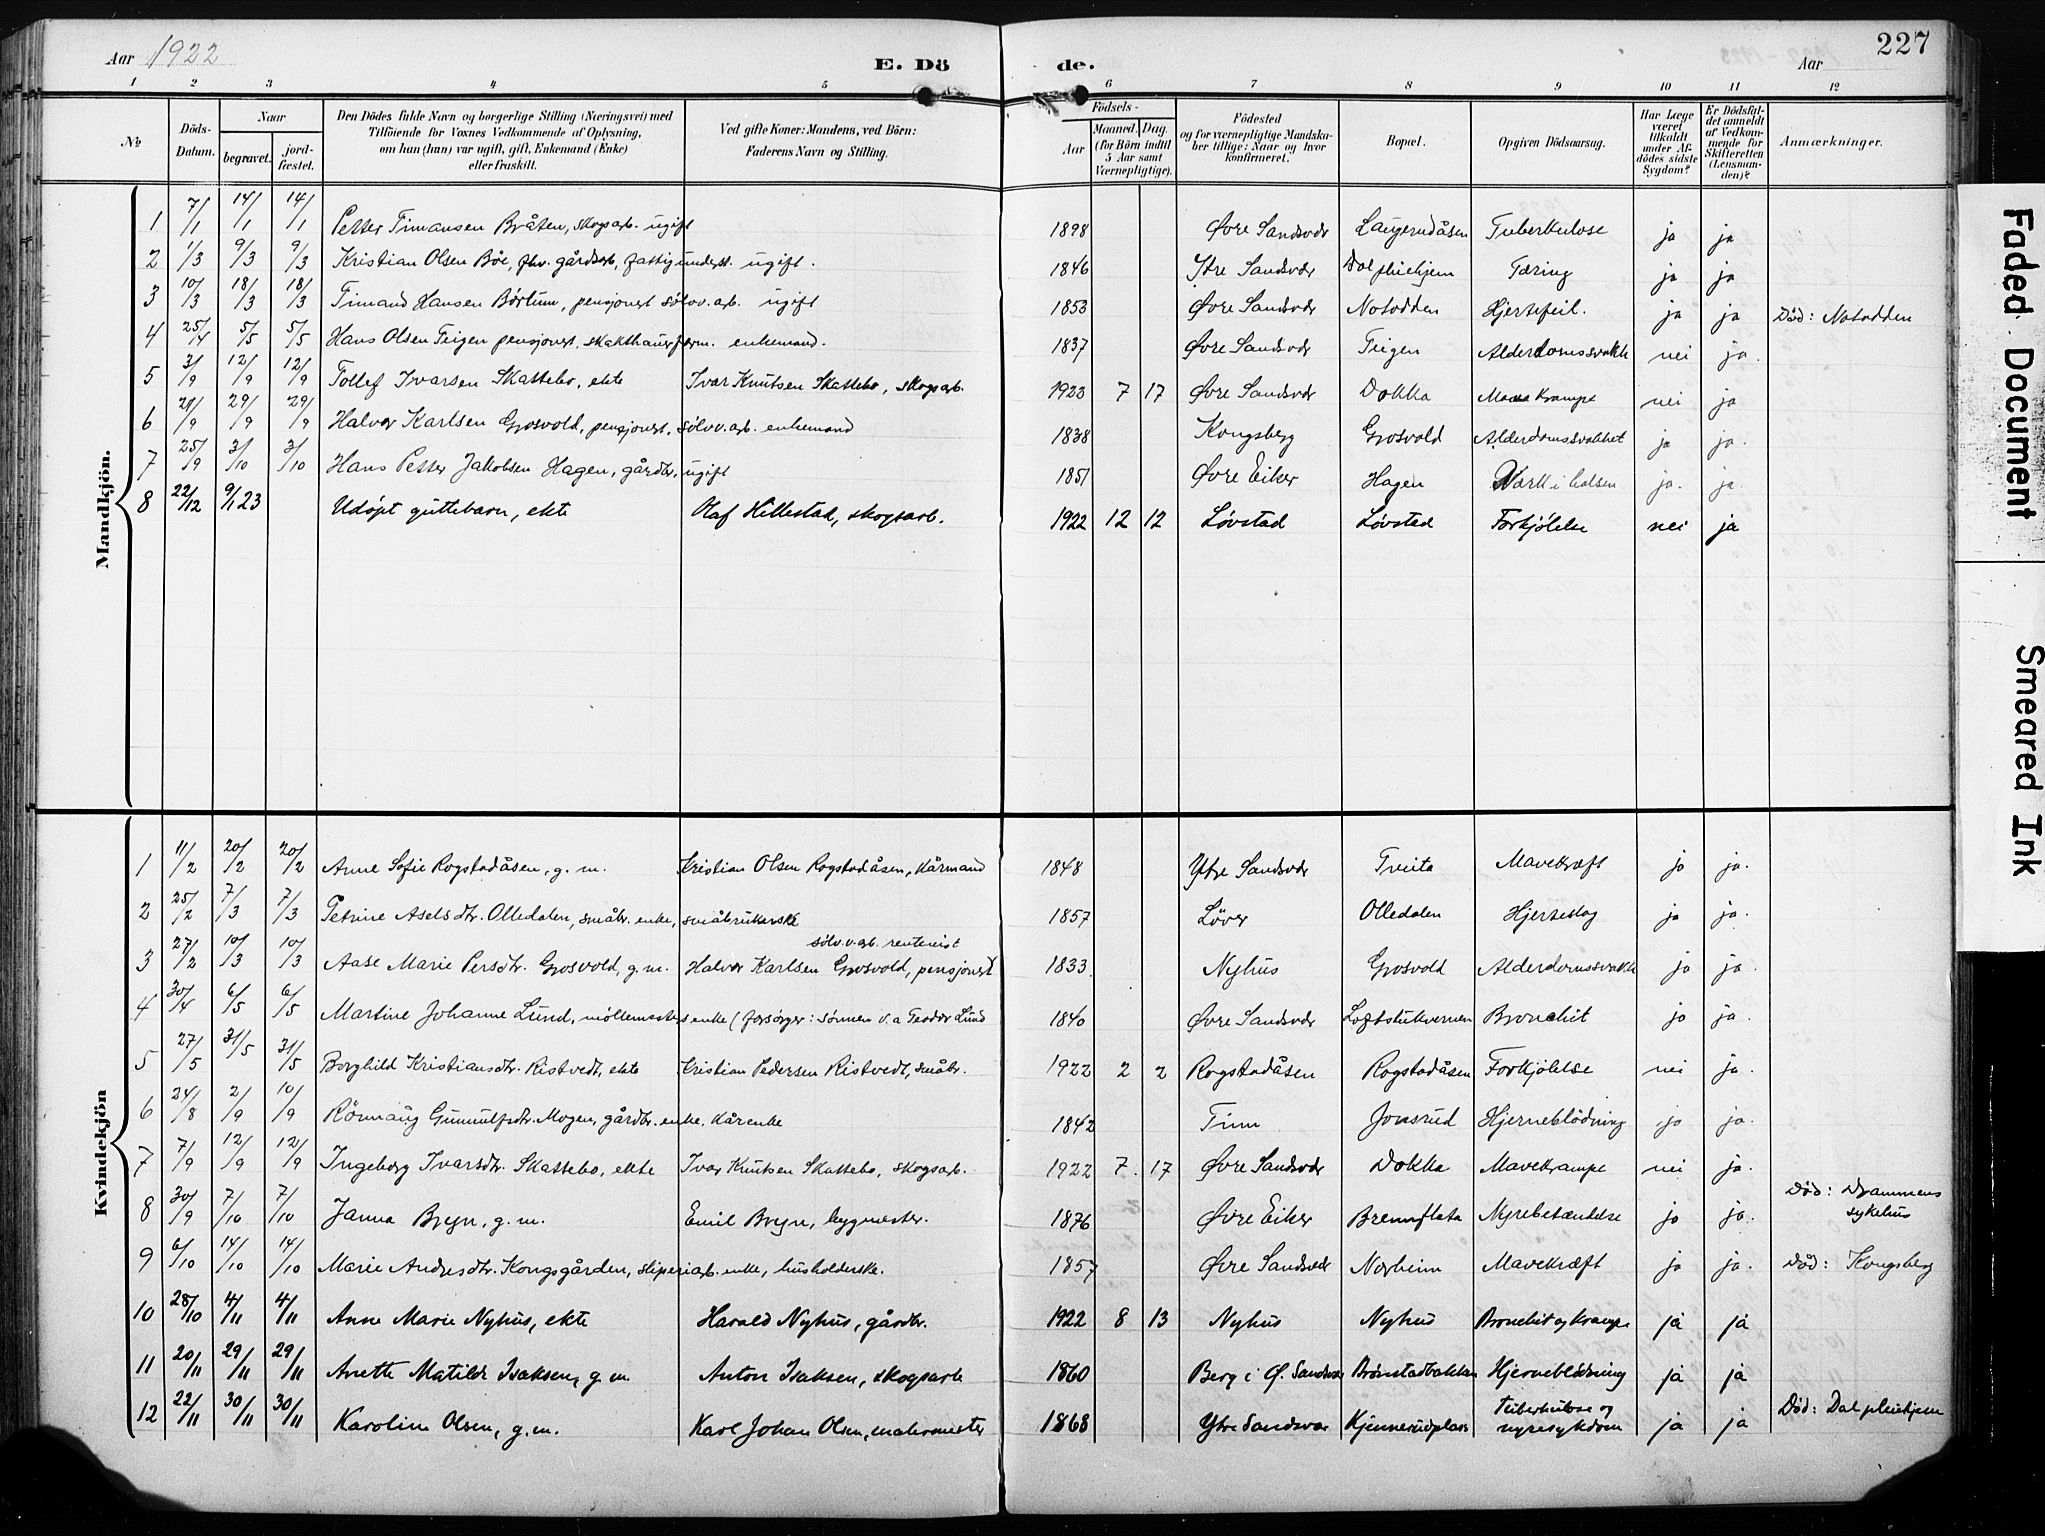 Aar 1922 E. Dö de. Aar 227
1 2 3 4 5 6 7 8 9 10 11 12
No
Döds-Datum.
Naar
begravet. jord-fæstet.
Den Dödes fulde Navn og borgerlige Stilling (Næringsvei) med
Tilföiende for Voxnes Vedkommende af Oplysning,
om han (hun) var ugift, gift, Enkemand (Enke)
eller fraskilt.
Ved gifte Koner: Mandens, ved Börn:
Faderens Navn og Stilling.
Födsels-
Aar
Maaned. Dag.
(for Börn indtil
5 Aar samt
Værnepligtige).
Födested
og for værnepligtige Mandska-
ber tillige: Naar og hvor
konfirmeret.
Bopæl.
Opgiven Dödsaarsag.
Har Læge
været
tilkaldt
under Af-
dödes sidste
Sygdom?
Er Dödsfal-
det anmeldt
af Vedkom-
mende for
Skifteretten
(Lensman-
den)?
Anmærkninger.
Mandkjön.
1 7/1 14/1 14/1 Petter Timansen Bråten, skogsarb. ugift 1898 Øvre Sandsvær Laugerudåsen Tuberkulose ja ja
2 1/3 9/3 9/3 Kristian Olsen Böe, fhv. gårdsarb., fattigunderst. ugift. 1846 Ytre Sandsvær Dal pleiehjem Tæring ja ja
3 10/3 18/3 18/3 Timand Hansen Börtum, pensjonert sölvv.arb. ugift 1853 Øvre Sandsvær Notodden Hjertefeil. ja ja Död: Notodden
4 25/4 5/5 5/5 Hans Olsen Teigen pensjonert, enkemand. 1837 Øvre Sandsvær Teigen Alderdomssvakh nei ja
5 3/9 12/9 12/9 Tollef Ivarsen Skattebo, ekte Ivar Knutsen Skattebo, skogsarb. 1922 7 17 Øvre Sandsvær Dokka Mavekrampe nei ja
6 21/9 29/9 29/9 Halvor Karlsen Grosvold, pensjonert, sølvv.arb. enkemand 1838 Kongsberg Grosvold Alderdomssvakhet ja ja.
7 25/9 3/10 3/10 Hans Petter Jakobsen Hagen, gårdbr. ugift 1851 Øvre Eiker Hagen Værk i halsen ja. ja.
8 22/12 9/1 23 Udøpt guttebarn, ekte Olaf Hillestad, skogsarb. 1922 12 12 Løvstad Løvstad Forkjølelse nei ja
Kvindekjön
1 11/2 20/2 20/2 Anne Sofie Rogstadåsen, g. m. Kristian Olsen Rogstadåsen, kårmand 1848 Ytre Sandsvær Tveita Mavekræft ja ja.
2 25/2 7/3 7/3 Petrine Akselsdtr. Olledalen, småbr. enke, småbrukerske 1857 Löver Olledalen Hjerteslag ja ja.
sölvv.arb.
3 27/2 10/3 10/3 Aase Marie Persdtr. Grosvold, g. m. Halvor Karlsen Grosvold, pensjonert 1833 Nyhus Grosvold Alderdomssvakh ja ja
4 30/4 6/5 6/5 Martine Johanne Lund, möllemesters enke (forsörger: sönnen v.a Teodor Lund 1840 Øvre Sandsvær Loftstukvernen Bronchit ja ja.
5 27/5 31/5 31/5 Borghild Kristiansdtr. Ristvedt, ekte Kristian Pedersen Ristvedt, småbr. 1922 2 2 Rogstadåsen Rogstadåsen Forkjölelse nei ja.
6 24/8 2/9 10/9 Rönnaug Gunnulfsdtr. Mogen, gårdbr. enke, kårenke 1842 Tinn Jonsrud Hjerneblödning ja ja.
7 7/9 12/9 12/9 Ingeborg Ivarsdtr. Skattebo, ekte Ivar Knutsen Skattebo, skogsarb. 1922 7. 17 Øvre Sandsvær Dokka Mavekrampe nei ja.
8 30/9 7/10 7/10 Janna Bryn, g. m. Emil Bryn, bygmester. 1876 Øvre Eiker Brennflata Nyrebetændelse ja ja. Död: Drammens sykehus
9 6/10 14/10 14/10 Marie Andresdtr. Kongsgården, sliperiarb. enke, husholderske. 1857 Øvre Sandsvær Norheim Mavekræft ja ja. Död: Kongsberg
10 28/10 4/11 4/11 Anne Marie Nyhus, ekte Harald Nyhus, gårdbr. 1922 8 13 Nyhus Nyhus Bronchit og krampe ja ja
11 20/11 29/11 29/11 Anette Matilde Isaksen, g. m. Anton Isaksen, skogsarb 1860 Berg i Ø. Sandsvær Brönstadbakken Hjerneblödning ja ja
12 22/11 30/11 30/11 Karoline Olsen, g. m. Karl Johan Olsen, malermester 1868 Ytre Sandsvær Kjennerudplass Tuberkulose og nyresykdom ja ja Död: Dal pleiehjem
Faded Document
Smeared Ink